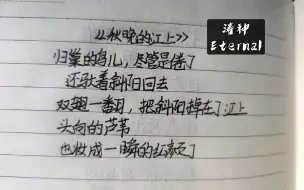 《秋晚的江上》
归巢的鸟儿，尽管是倦了
还驮着斜阳回去
双翅一翻，把斜阳掉在了江上
头白的芦苇
也妆成一瞬的红颜了
渣神
Eternal